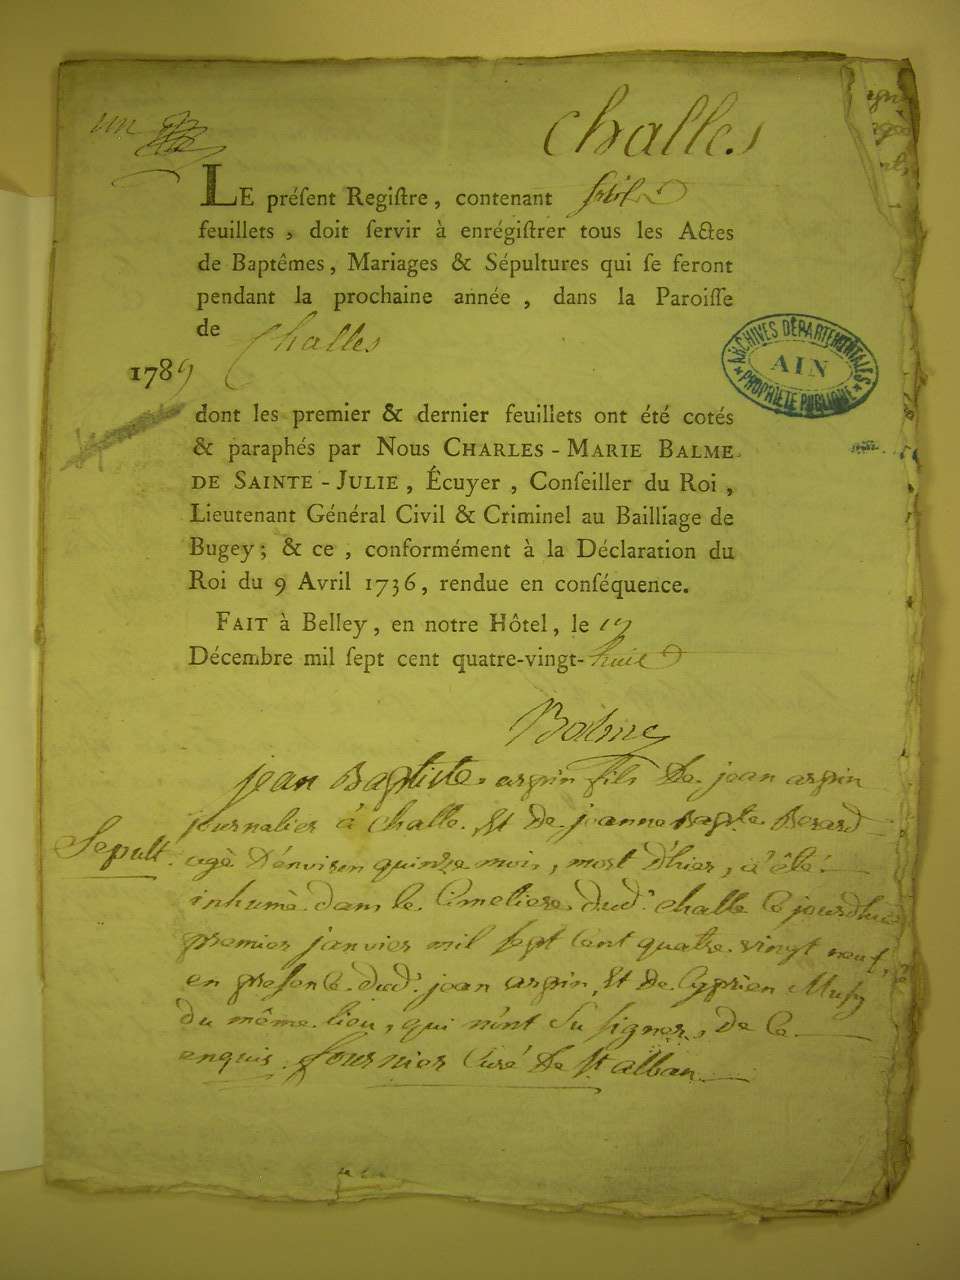 un
Challes
LE préſent Regiſtre, contenant
feuillets, doit ſervir à enrégiſtrer tous les Actes
de Baptêmes, Mariages & Sépultures qui ſe feront
pendant la prochaine année, dans la Paroiſſe
de Challes
1789
ARCHIVES DÉPARTEMENTALES
AIN
PROPRIÉTÉ PUBLIQUE
dont les premier & dernier feuillets ont été cotés
& paraphés par Nous CHARLES-MARIE BALME
DE SAINTE-JULIE, Écuyer, Conſeiller du Roi,
Lieutenant Général Civil & Criminel au Bailliage de
Bugey; & ce, conformément à la Déclaration du
Roi du 9 Avril 1736, rendue en conſéquence.
FAIT à Belley, en notre Hôtel, le
Décembre mil ſept cent quatre-vingt-huit
Balme
Sepult.
jean Baptiste arpin fils de jean arpin
journalier à Challe et de jeanne Bapte Berard
agé d'environ quinze mois, mort d'hier, a été
inhumé dans le Cimetiere dud. challe ce jourdhui
premier janvier mil sept cent quatre vingt neuf,
en presence dud. jean arpin, et de Cyprien Musy
du même lieu, qui n'ont su signer, de ce
enquis. fournier Curé de St alban